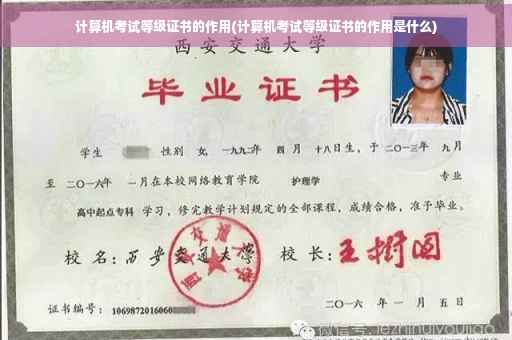 计算机考试等级证书的作用(计算机考试等级证书的作用是什么)
西安交通大学
毕业证书
学生 性别 女, 一九九二年 四月 十八日生, 于二〇一三年 九月
至 二〇一六年 一月在本校网络教育学院 护理学 专业
高中起点专科 学习, 修完教学计划规定的全部课程, 成绩合格, 准予毕业。
校 名: 西安交通大学 校 长: 王树国
西安交通大学
证书编号: 1069872016060
二〇一六 年 一 月 五 日
微信号: jezhinuiyoujiao